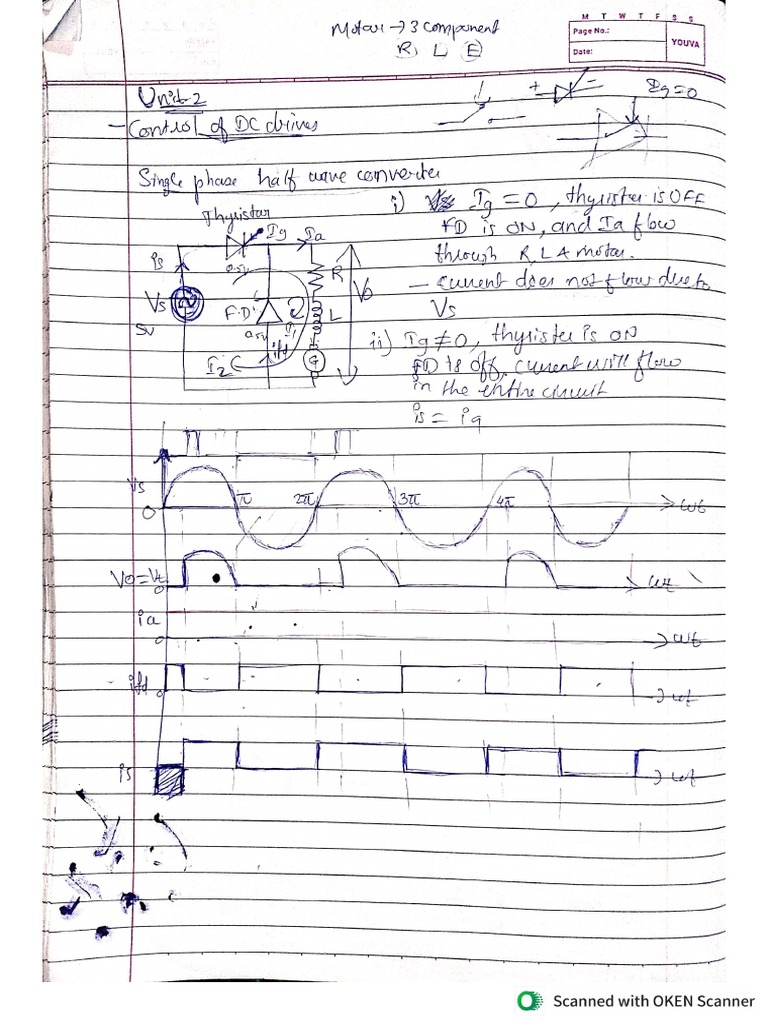 Motor → 3 component
R L E
M T W T F S S
Page No.:
Date:
YOUVA
Unit-2
- Control of DC drives
+ -
Ig=0
Single phase half wave converter
Thyristor
Ig
Ia
is
Vs
5v
F.D
R
L
Vo
I2
ifd
i) Ig = 0, thyrister is OFF
FD is ON, and Ia flow
through R, L A motor.
- current does not flow due to
Vs
ii) Ig ≠ 0, thyrister is ON
FD is off, current will flow
in the entire circuit
is = iq
Vs
0
π 2π 3π 4π
→ wt
Vo = Vt
0
wt
ia
0
→ wt
ifd
0
→ wt
is
→ wt
Scanned with OKEN Scanner